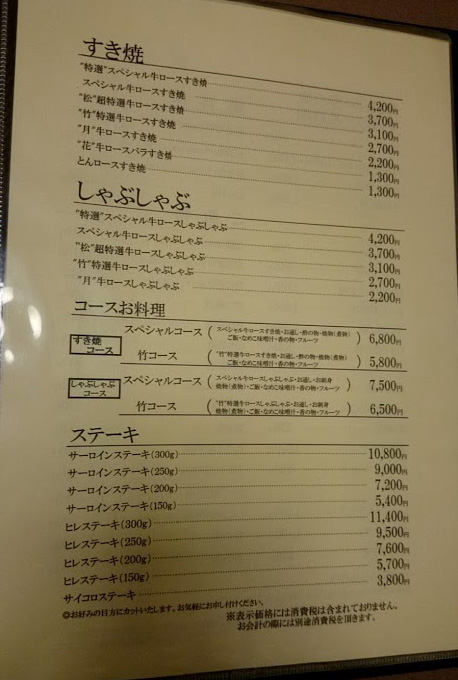 すき焼
"特選"スペシャル牛ロースすき焼 4,200円
スペシャル牛ロースすき焼 3,700円
"松"超特選牛ロースすき焼 3,100円
"竹"特選牛ロースすき焼 2,700円
"月"牛ロースすき焼 2,200円
"花"牛ロースバラすき焼 1,300円
とんロースすき焼 1,300円
しゃぶしゃぶ
"特選"スペシャル牛ロースしゃぶしゃぶ 4,200円
スペシャル牛ロースしゃぶしゃぶ 3,700円
"松"超特選牛ロースしゃぶしゃぶ 3,100円
"竹"特選牛ロースしゃぶしゃぶ 2,700円
"月"牛ロースしゃぶしゃぶ 2,200円
コースお料理
すき焼
コース
スペシャルコース (スペシャル牛ロースすき焼・お通し・酢の物・焼物(煮物)
ご飯・なめこ味噌汁・香の物・フルーツ) 6,800円
竹コース ("竹"特選牛ロースすき焼・お通し・酢の物・焼物(煮物)
ご飯・なめこ味噌汁・香の物・フルーツ) 5,800円
しゃぶしゃぶ
コース
スペシャルコース (スペシャル牛ロースしゃぶしゃぶ・お通し・お刺身
焼物(煮物)・ご飯・なめこ味噌汁・香の物・フルーツ) 7,500円
竹コース ("竹"特選牛ロースしゃぶしゃぶ・お通し・お刺身
焼物(煮物)・ご飯・なめこ味噌汁・香の物・フルーツ) 6,500円
ステーキ
サーロインステーキ(300g) 10,800円
サーロインステーキ(250g) 9,000円
サーロインステーキ(200g) 7,200円
サーロインステーキ(150g) 5,400円
ヒレステーキ(300g) 11,400円
ヒレステーキ(250g) 9,500円
ヒレステーキ(200g) 7,600円
ヒレステーキ(150g) 5,700円
サイコロステーキ 3,800円
◎お好みの目方にカットいたします。お気軽にお申し付けください。
※表示価格には消費税は含まれておりません。
お会計の際には別途消費税を頂きます。